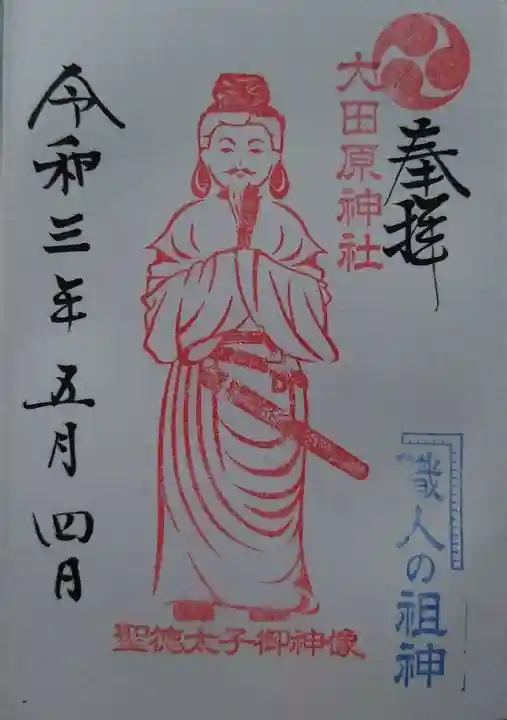 奉拝
大田原神社
職人の祖神
聖徳太子御神像
令和三年五月四日